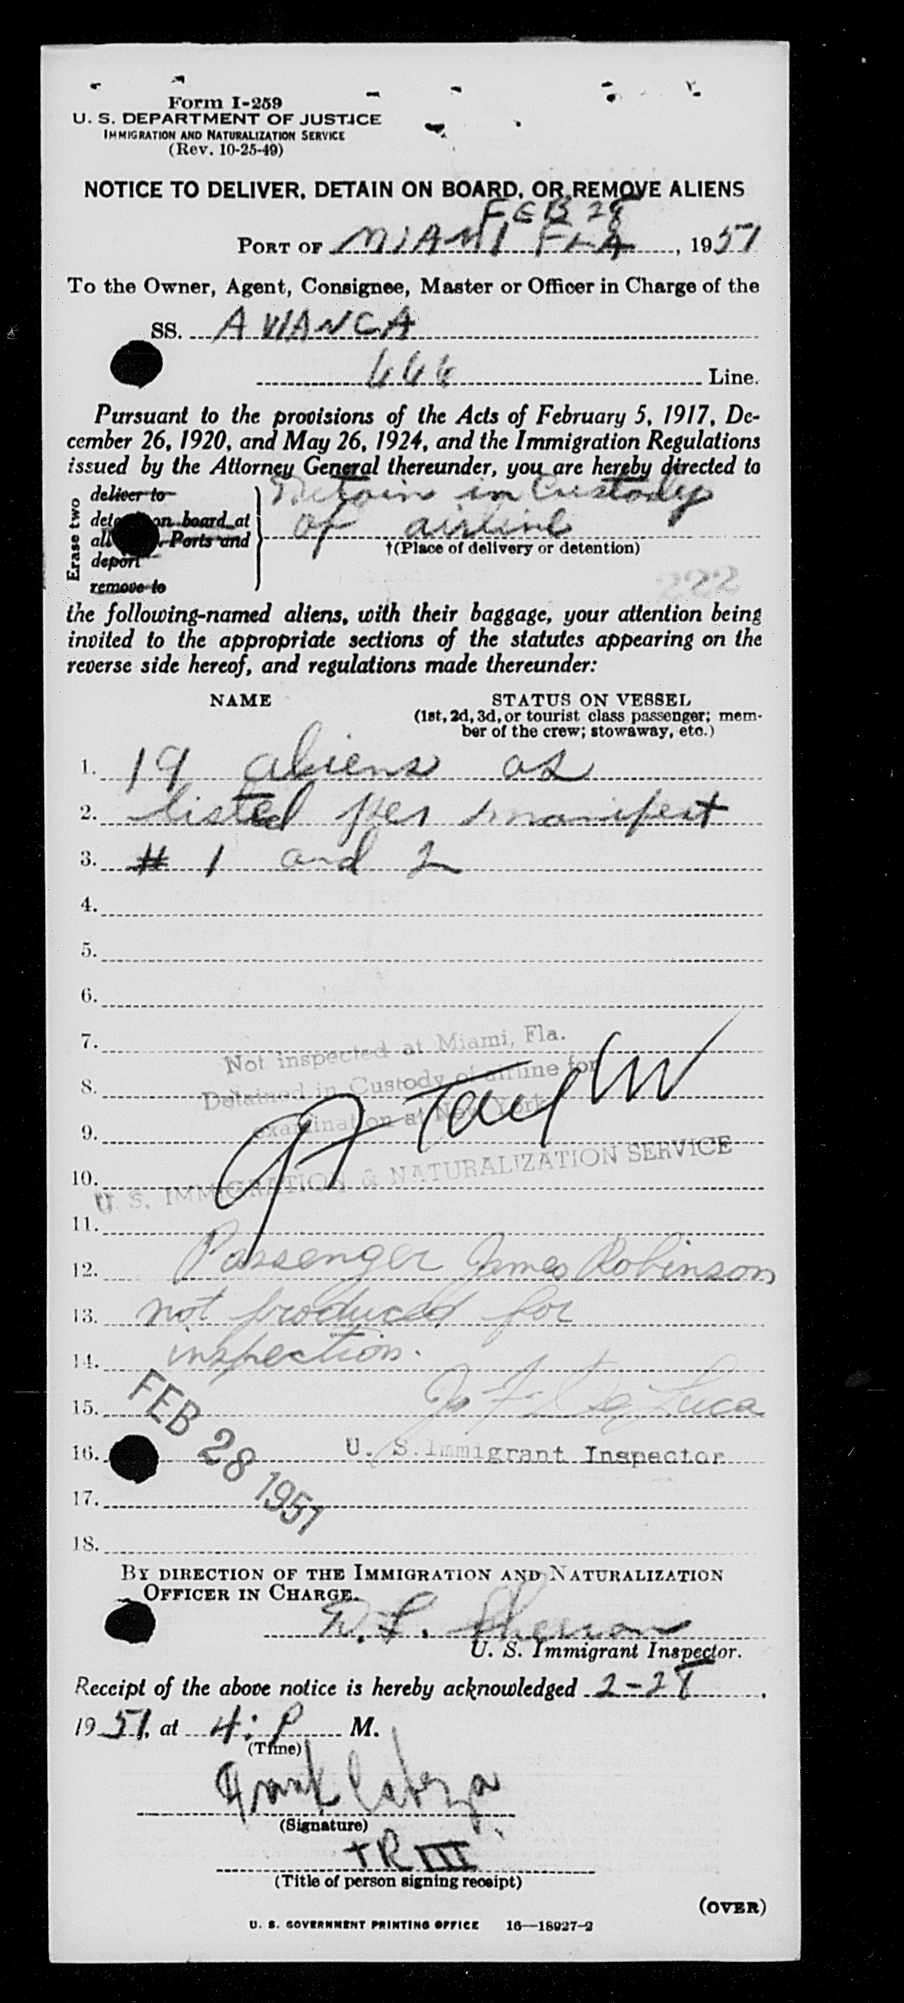 Form I-259
U. S. DEPARTMENT OF JUSTICE
IMMIGRATION AND NATURALIZATION SERVICE
(Rev. 10-25-49)
NOTICE TO DELIVER, DETAIN ON BOARD, OR REMOVE ALIENS
FEB 28
PORT OF MIAMI FLA, 1951
To the Owner, Agent, Consignee, Master or Officer in Charge of the
SS. AVIANCA
666 Line.
Pursuant to the provisions of the Acts of February 5, 1917, De-
cember 26, 1920, and May 26, 1924, and the Immigration Regulations
issued by the Attorney General thereunder, you are hereby directed to
Erase two
deliver to
on board at
Ports and
deport
remove to
Detain in Custody
of airline
†(Place of delivery or detention)
222
the following-named aliens, with their baggage, your attention being
invited to the appropriate sections of the statutes appearing on the
reverse side hereof, and regulations made thereunder:
NAME STATUS ON VESSEL
(1st, 2d, 3d, or tourist class passenger; mem-
ber of the crew; stowaway, etc.)
1. 19 aliens as
2. listed per manifest
3. # 1 and 2
4.
5.
6.
7. Not inspected at Miami, Fla.
8. Detained in Custody of airline for
9. examination at New York
10. U. S. IMMIGRATION & NATURALIZATION SERVICE
11.
12. Passenger James Robinson
13. not produced for
14. inspection.
15. De Luca
FEB 28 1951
16. U. S. Immigrant Inspector
17.
18.
BY DIRECTION OF THE IMMIGRATION AND NATURALIZATION
OFFICER IN CHARGE.
U. S. Immigrant Inspector.
Receipt of the above notice is hereby acknowledged 2-28,
1951, at 4: P M.
(Time)
Frank
(Signature)
(Title of person signing receipt)
(OVER)
U. S. GOVERNMENT PRINTING OFFICE 16—18927-2